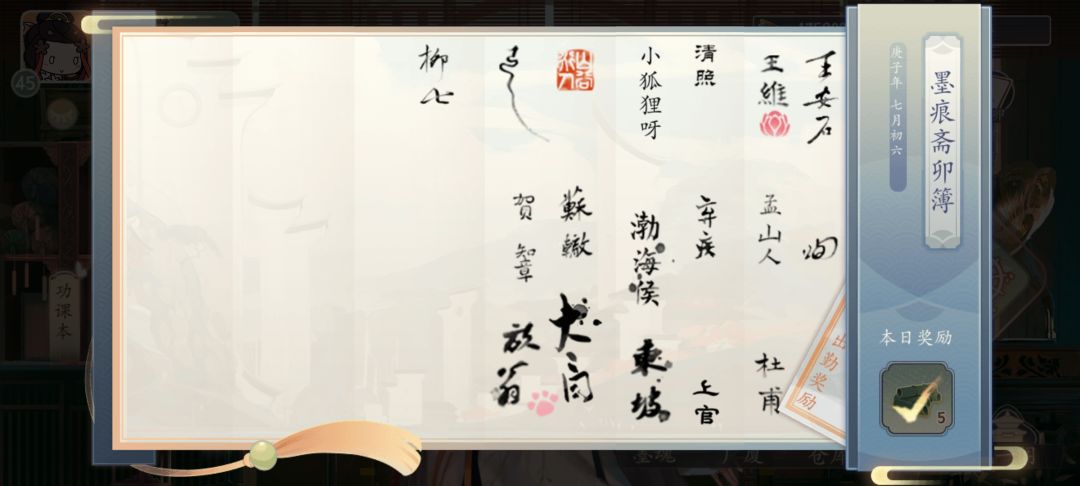 墨痕斋卯簿
庚子年 七月初六
本日奖励
5
出勤奖励
王安石
王維
孟山人
杜甫
清照
弃疾
上官
小狐狸呀
渤海侯
東坡
蘇轍
賀知章
放翁
柳七
功课本
45